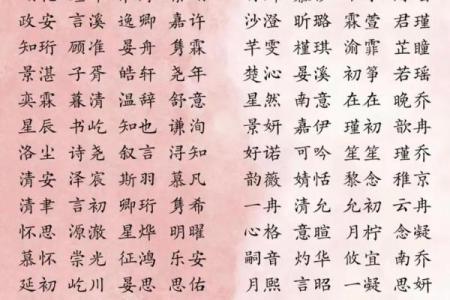 政安 言溪 逸卿 嘉许 沙澄 昕璐 霖萱 君瑾
知珩 顾准 晏舟 隽霖 芊雯 槿琪 渝霏 芷瞳
景湛 子胥 皓轩 尧年 楚沁 晏溪 初筝 若瑶
奕霏 暮清 温辞 舒意 星然 南意 在在 晚乔
星辰 书屹 知也 谦洵 景妍 嘉伊 瑾初 歆冉
洛尘 诗尧 叙言 浔知 好诺 可吟 笙笙 瑾乔
清安 泽宸 斯羽 慕凡 韵薇 婧恬 黎念 稚京
清聿 言初 卿珩 隽希 一冉 清允 允初 云冉
怀思 源澈 星烨 明曜 心格 意暄 月柠 念凝
慕怀 崇光 征鸿 乐安 嗣音 灼华 攸宜 南乔
延初 屹川 晏思 思佑 月熙 言昭 一凝 思妍